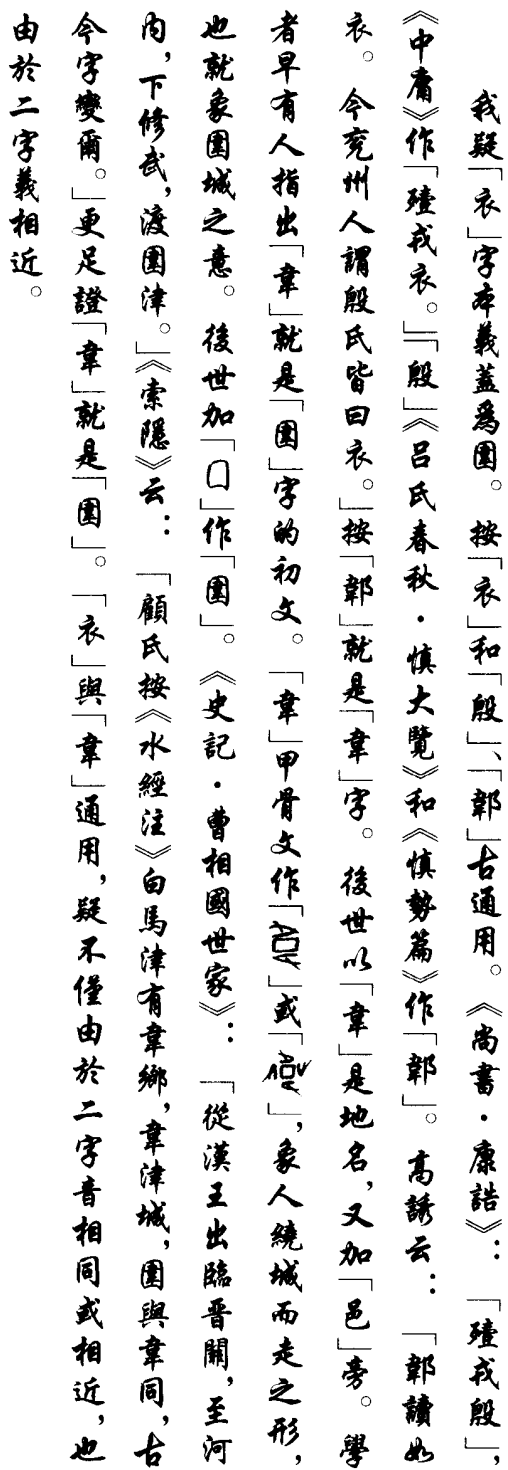 我疑「衣」字本義蓋爲圍。按「衣」和「殷」、「鄣」古通用。《尚書·康誥》：「殪戎殷」，
《中庸》作「殪戎衣。」「殷」《吕氏春秋·慎大覽》和《慎勢篇》作「鄣」。高誘云：「鄣讀如
衣。今兖州人謂殷氏皆曰衣。」按「鄣」就是「韋」字。後世以「韋」是地名，又加「邑」旁。學
者早有人指出「韋」就是「圍」字的初文。「韋」甲骨文作「」或「」，象人繞城而走之形，
也就象圍城之意。後世加「囗」作「圍」。《史記·曹相國世家》：「從漢王出臨晋關，至河
内，下修武，渡圍津。」《索隱》云：「顧氏按《水經注》白馬津有韋鄉，韋津城，圍與韋同，古
今字變爾。」更足證「韋」就是「圍」。「衣」與「韋」通用，疑不僅由於二字音相同或相近，也
由於二字義相近。